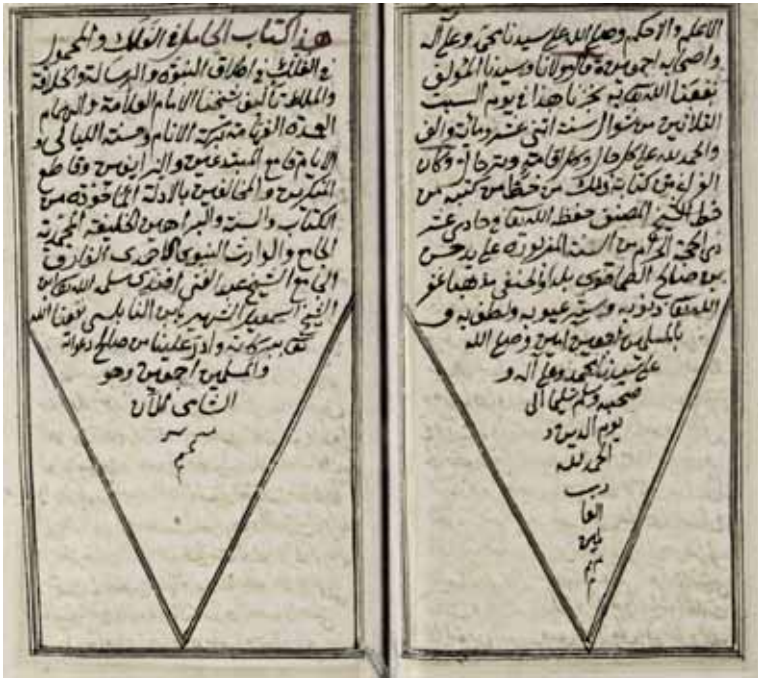 الاعلم والاحكم وصلى الله على سيدنا محمد وعلى آله
واصحابه اجمعين قال مولانا وسيدنا المؤلف
نفعنا الله تعالى به تحريرنا هذا في يوم السبت
الثلاثين من شوال سنة اثنى عشر ومائة والف
والحمد لله على كل حال وكل اقامة وترحال وكان
الفراغ من كتابة ذلك من خط من كتبه من
خط الشيخ المصنف حفظه الله تعالى حادي عشر
ذي الحجة الحرام من السنة المزبورة على يد حسن
بن صالح بلدا والحنفي مذهبا غفر
الله تعالى ذنوبه وستر عيوبه ولطف به و
بالمسلمين اجمعين امين وصلى الله
على سيدنا محمد وعلى آله و
صحبه وسلم تسليما الى
يوم الدين و
الحمد لله
رب
العا
لمين
هذا كتاب الحامل في الفلك والمحمول
في الفلك في اطلاق النبوة والرسالة والخلافة
والملك تأليف شيخنا الامام العلامة والهمام
العمدة الفهامة بركة الانام وحسنة الليالي و
الايام قامع المبتدعين وقاطع
المنكرين والمخالفين بالادلة المأخوذة من
الكتاب والسنة والبراهين الخليفة المحمدية
الجامع والوارث النبوي الاحمدي الفارق
الجامع الشيخ عبد الغني افندي سلمه الله تعالى ابن
الشيخ اسمعيل الشهير بابن النابلسي نفعنا الله
تعالى ببركاته وادر علينا من صالح دعواته
والمسلمين اجمعين وهو
الشامي الآن